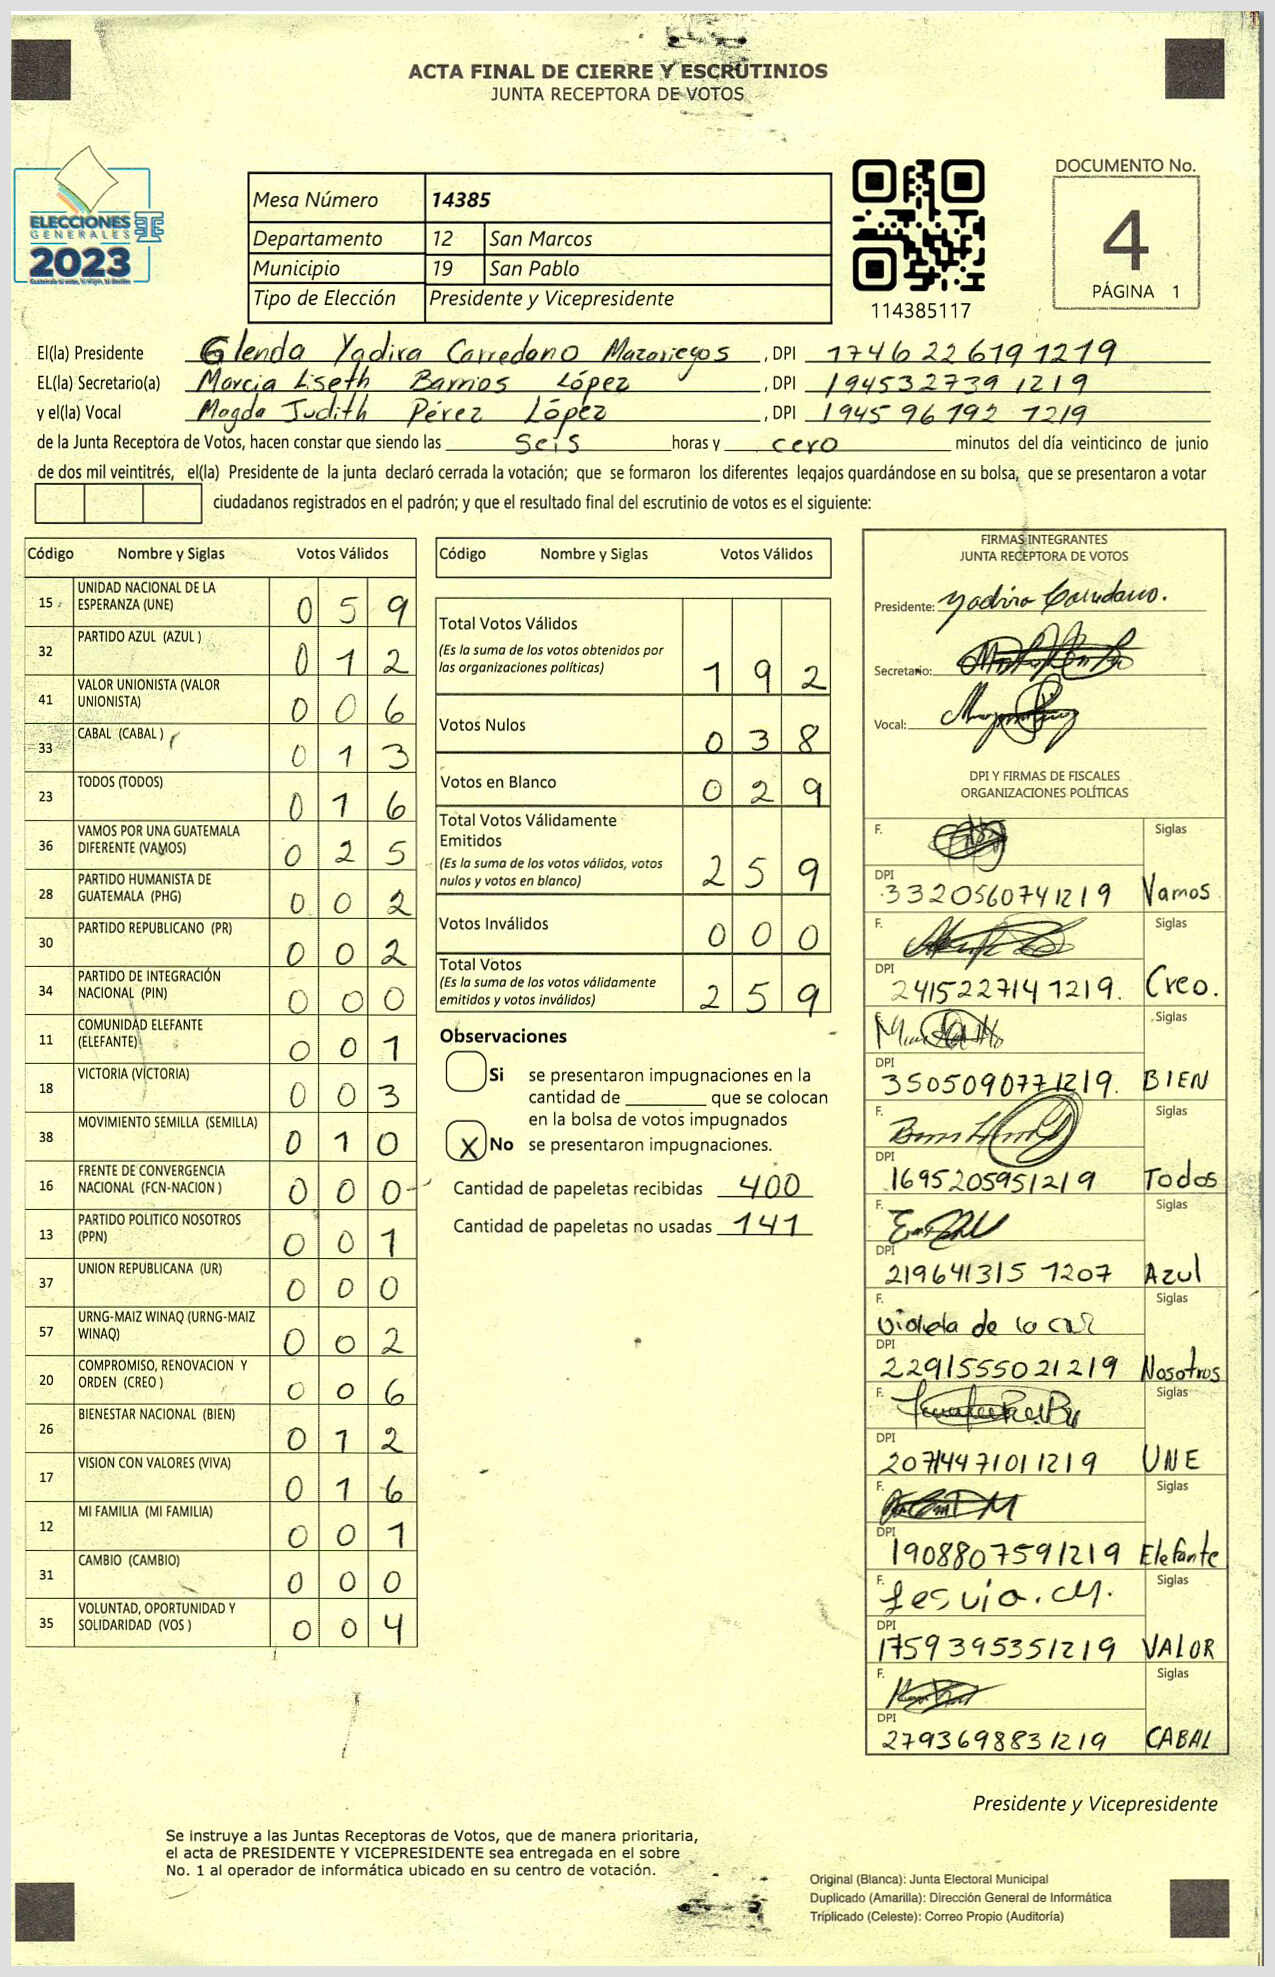 ACTA FINAL DE CIERRE Y ESCRUTINIOS
JUNTA RECEPTORA DE VOTOS
ELECCIONES
GENERALES
2023
Mesa Número 14385
Departamento 12 San Marcos
Municipio 19 San Pablo
Tipo de Elección Presidente y Vicepresidente
114385117
DOCUMENTO No.
4
PÁGINA 1
El(la) Presidente Glenda Yadira Carredano Mazariegos , DPI 1746226191219
EL(la) Secretario(a) Marcia Liseth Barrios López , DPI 1945327391219
y el(la) Vocal Magda Judith Pérez López , DPI 1945961921219
de la Junta Receptora de Votos, hacen constar que siendo las seis horas y cero minutos del día veinticinco de junio
de dos mil veintitrés, el(la) Presidente de la junta declaró cerrada la votación; que se formaron los diferentes legajos guardándose en su bolsa, que se presentaron a votar
ciudadanos registrados en el padrón; y que el resultado final del escrutinio de votos es el siguiente:
Código Nombre y Siglas Votos Válidos
15 UNIDAD NACIONAL DE LA
ESPERANZA (UNE) 0 5 9
32 PARTIDO AZUL (AZUL ) 0 1 2
41 VALOR UNIONISTA (VALOR
UNIONISTA) 0 0 6
33 CABAL (CABAL ) 0 1 3
23 TODOS (TODOS) 0 1 6
36 VAMOS POR UNA GUATEMALA
DIFERENTE (VAMOS) 0 2 5
28 PARTIDO HUMANISTA DE
GUATEMALA (PHG) 0 0 2
30 PARTIDO REPUBLICANO (PR) 0 0 2
34 PARTIDO DE INTEGRACIÓN
NACIONAL (PIN) 0 0 0
11 COMUNIDAD ELEFANTE
(ELEFANTE) 0 0 1
18 VICTORIA (VICTORIA) 0 0 3
38 MOVIMIENTO SEMILLA (SEMILLA) 0 1 0
16 FRENTE DE CONVERGENCIA
NACIONAL (FCN-NACION ) 0 0 0
13 PARTIDO POLITICO NOSOTROS
(PPN) 0 0 1
37 UNION REPUBLICANA (UR) 0 0 0
57 URNG-MAIZ WINAQ (URNG-MAIZ
WINAQ) 0 0 2
20 COMPROMISO, RENOVACION Y
ORDEN (CREO ) 0 0 6
26 BIENESTAR NACIONAL (BIEN) 0 1 2
17 VISION CON VALORES (VIVA) 0 1 6
12 MI FAMILIA (MI FAMILIA) 0 0 1
31 CAMBIO (CAMBIO) 0 0 0
35 VOLUNTAD, OPORTUNIDAD Y
SOLIDARIDAD (VOS ) 0 0 4
Código Nombre y Siglas Votos Válidos
Total Votos Válidos
(Es la suma de los votos obtenidos por
las organizaciones políticas) 1 9 2
Votos Nulos 0 3 8
Votos en Blanco 0 2 9
Total Votos Válidamente
Emitidos
(Es la suma de los votos válidos, votos
nulos y votos en blanco) 2 5 9
Votos Inválidos 0 0 0
Total Votos
(Es la suma de los votos válidamente
emitidos y votos inválidos) 2 5 9
Observaciones
Si se presentaron impugnaciones en la
cantidad de ________ que se colocan
en la bolsa de votos impugnados
X No se presentaron impugnaciones.
Cantidad de papeletas recibidas 400
Cantidad de papeletas no usadas 141
FIRMAS INTEGRANTES
JUNTA RECEPTORA DE VOTOS
Presidente: Yadira Carredano.
Secretario:
Vocal:
DPI Y FIRMAS DE FISCALES
ORGANIZACIONES POLÍTICAS
F. Siglas
DPI
3320560741219 Vamos
F. Siglas
DPI
2415227141219. Creo.
F. Siglas
DPI
3505090771219. BIEN
F. Siglas
DPI
1695205951219 Todos
F. Siglas
DPI
2196413151207 Azul
F. Siglas
DPI
2291555021219 Nosotros
F. Siglas
DPI
2071447101219 UNE
F. Siglas
DPI
1908807591219 Elefante
F. Siglas
DPI
1759395351219 VALOR
F. Siglas
DPI
2793698831219 CABAL
Presidente y Vicepresidente
Se instruye a las Juntas Receptoras de Votos, que de manera prioritaria,
el acta de PRESIDENTE Y VICEPRESIDENTE sea entregada en el sobre
No. 1 al operador de informática ubicado en su centro de votación.
Original (Blanca): Junta Electoral Municipal
Duplicado (Amarilla): Dirección General de Informática
Triplicado (Celeste): Correo Propio (Auditoría)